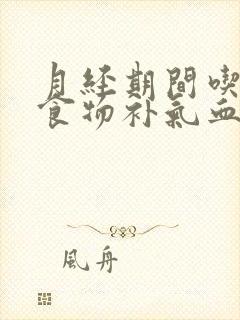 月经期间喫
食物补氣血
風舟